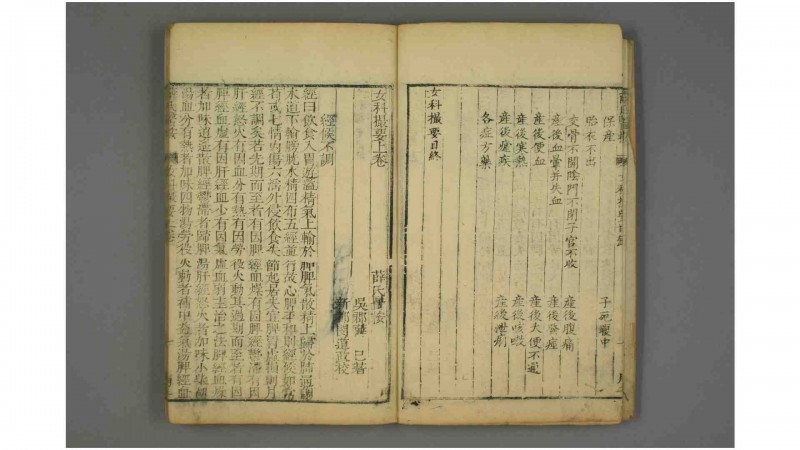 保産
胎衣不出 子死腹中
交骨不開陰門不閉子宮不收
産後血暈并失血 産後腹痛
産後便血 産後發痙
産後寒熱 産後大便不通
産後瘧疾 産後咳嗽
各症方藥 産後瀉痢
女科撮要目終
女科撮要上卷 薛氏醫按
吳郡薛 己著
新都閔道政校
經候不調
經曰飲食入胃遊溢精氣上輸於脾脾氣散精上歸於肺通調
水道下輸膀胱水精四布五經並行故心脾平和則經候如常
苟或七情內傷六淫外侵飲食失節起居失宜脾胃虛損則月
經不調矣若先期而至者有因脾經血燥有因脾經鬱滯有因
肝經怒火有因血分有熱有因勞役火動其過期而至者有因
脾經血虛有因肝經血少有因氣虛血弱主治之法脾經血燥
者加味逍遙散脾經鬱滯者歸脾湯肝經怒火者加味小柴胡
湯血分有熱者加味四物湯勞役火動者補中益氣湯脾經血